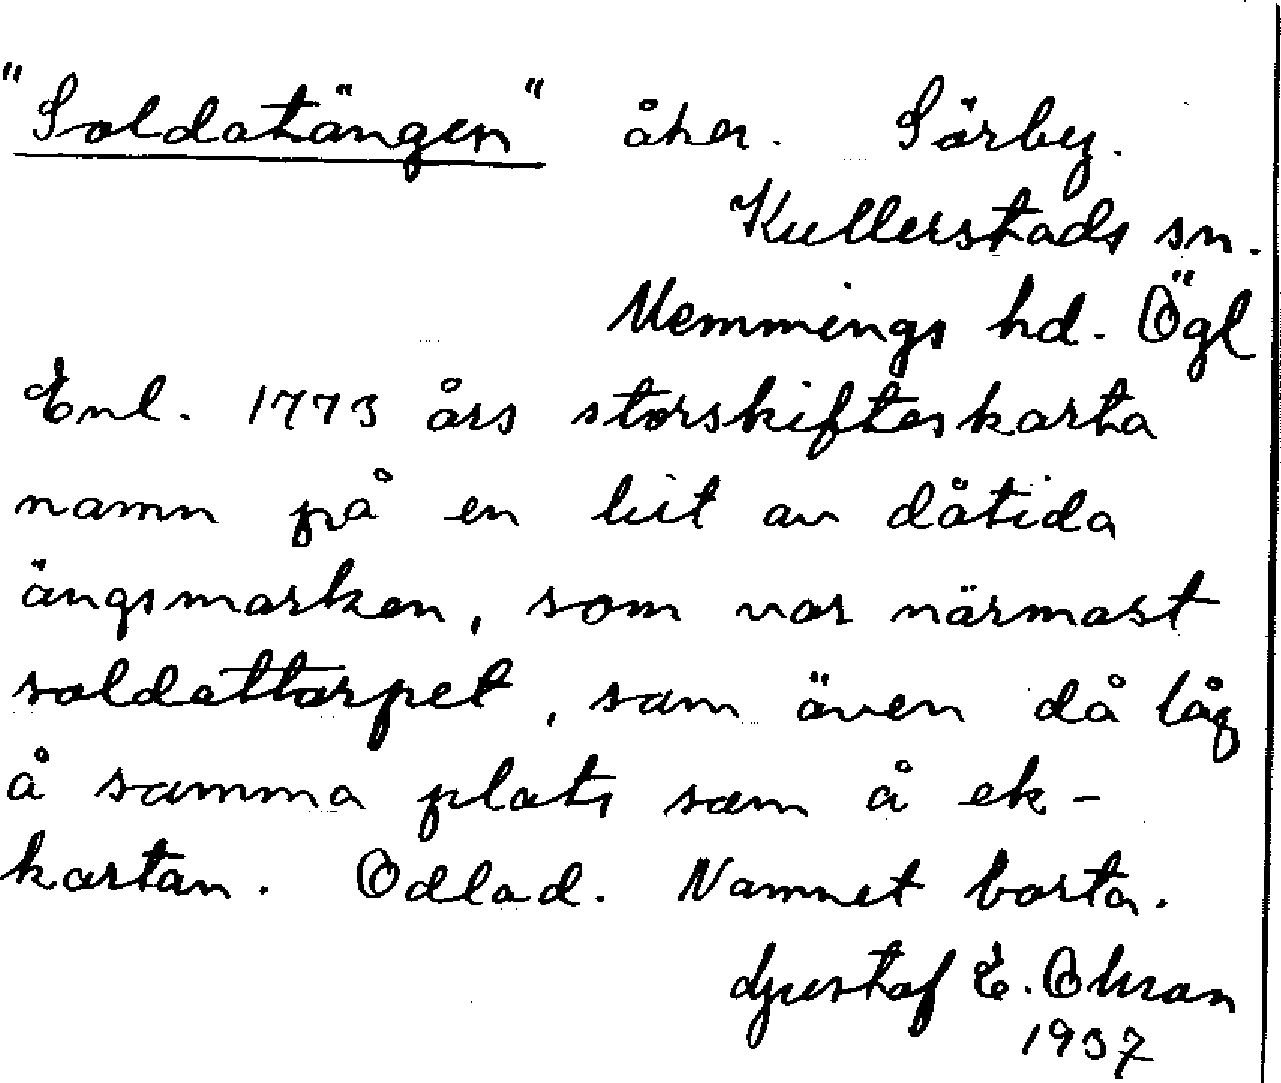 "Soldatängen" åker. Sörby.
Kullerstads sn.
Memmings hd. Ögl
Enl. 1773 års storskifteskarta
namn på en bit av dåtida
ängsmarken, som var närmast
soldattorpet, som även då låg
å samma plats som å ek-
kartan. Odlad. Namnet borta.
Gustaf E. Ohran
1937